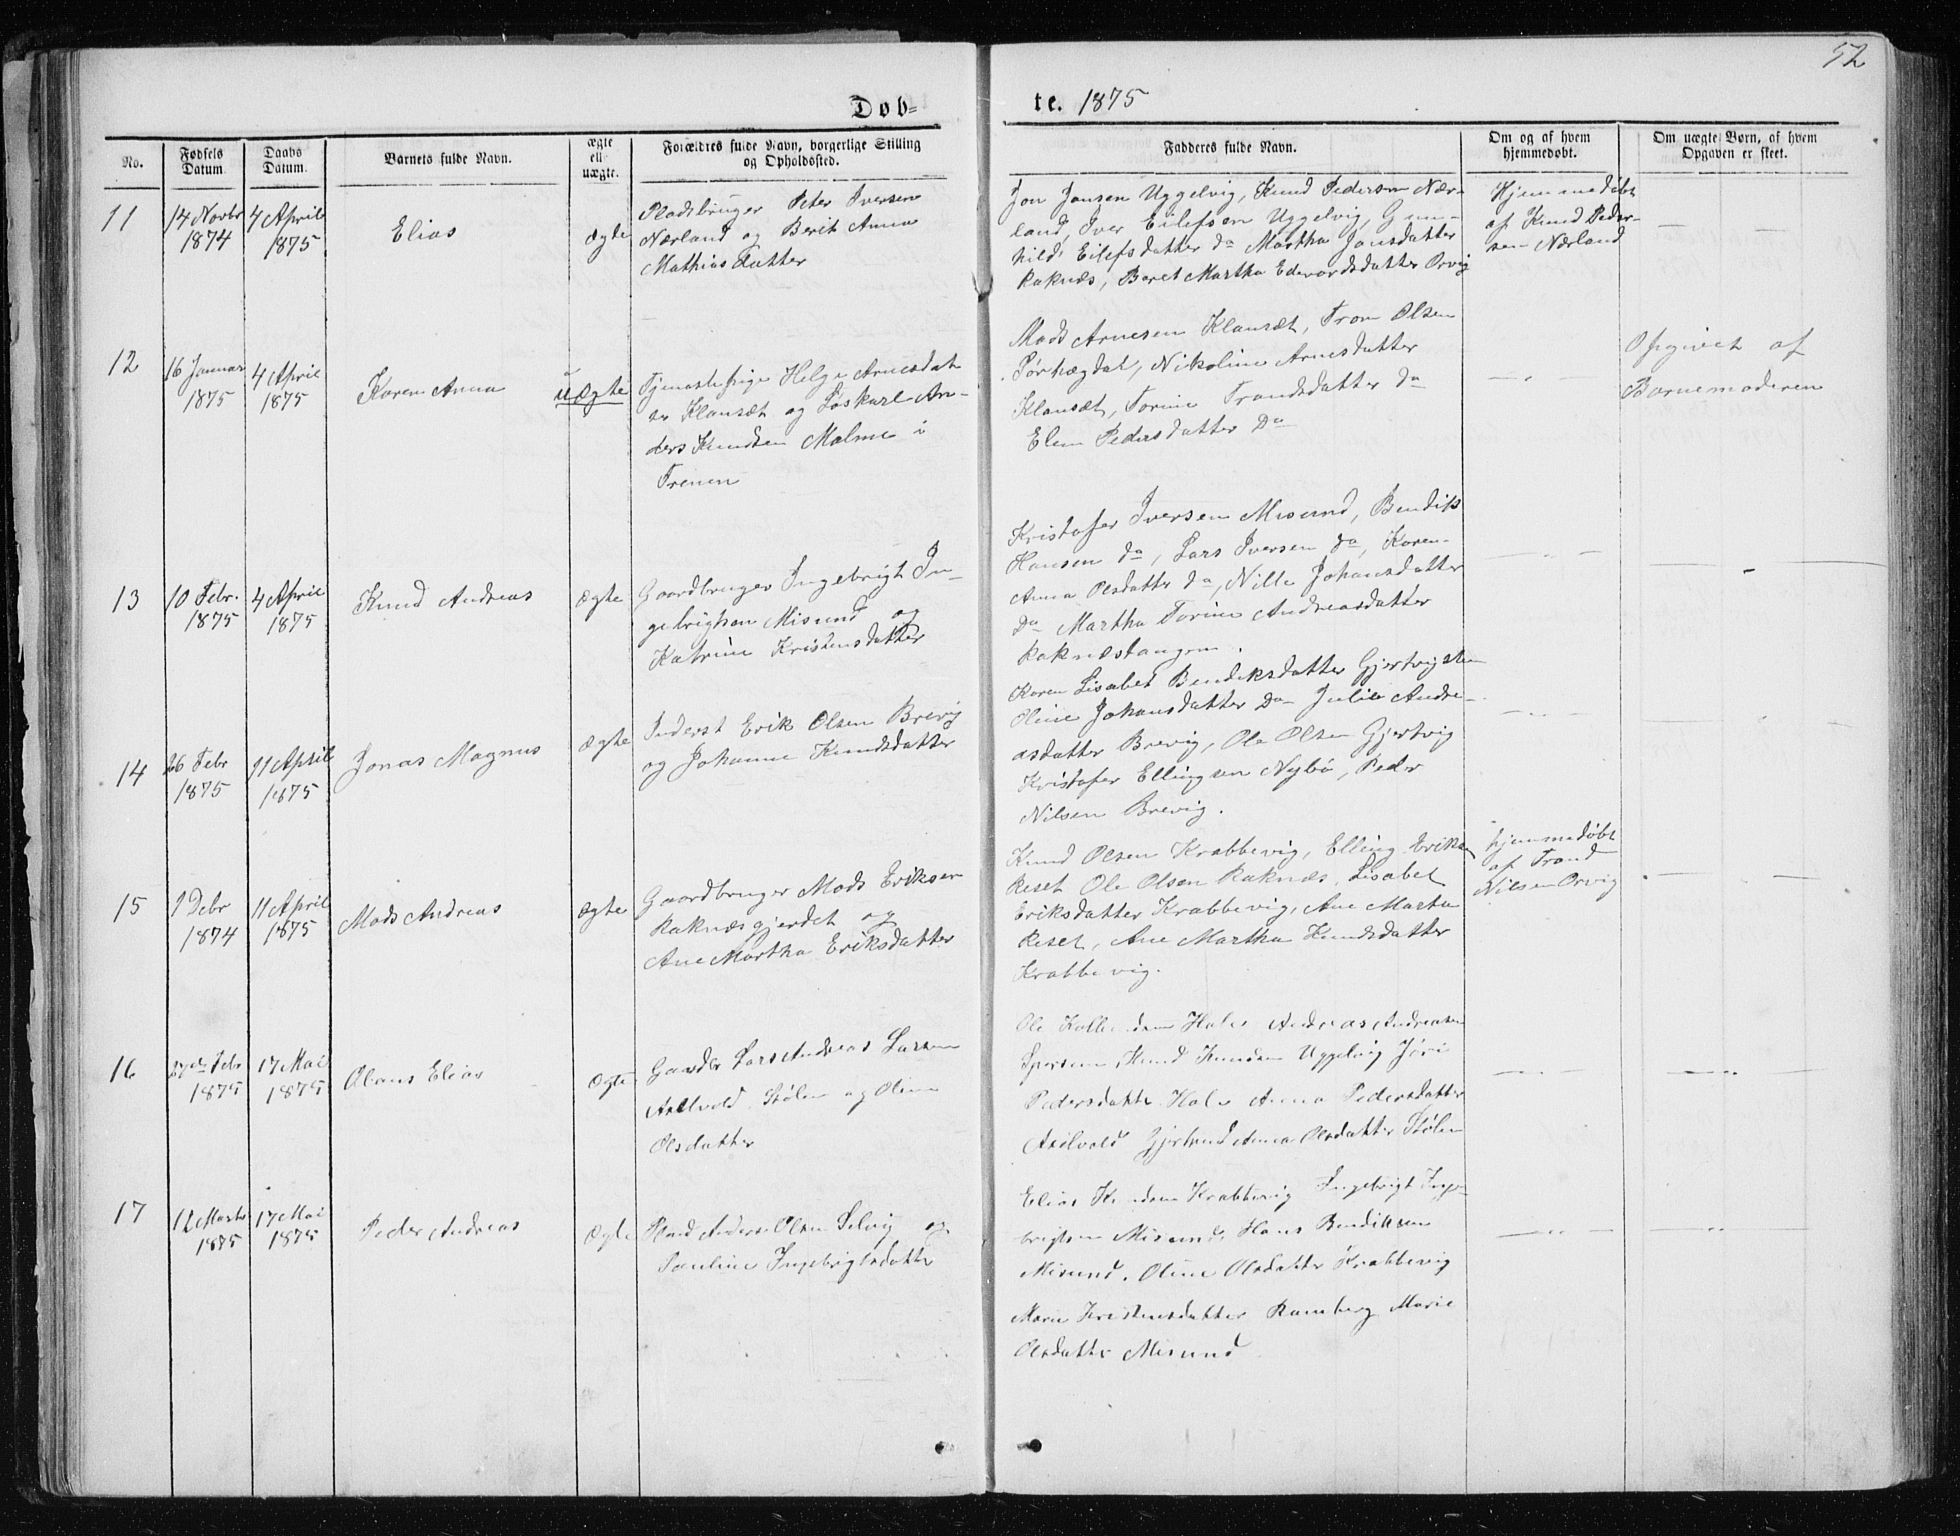 52
Døb-
te. 1875
No.
Fødsels Datum.
Daabs Datum.
Barnets fulde Navn.
ægte ell. uægte.
Forældres fulde Navn, borgerlige Stilling og Opholdssted.
Fadderes fulde Navn.
Om og af hvem hjemmedøbt.
Om uægte Børn, af hvem Opgaven er skeet.
11
14 Novbr 1874
4 April 1875
Elias
ægte
Pladsbruger Peter Iversen
Nærland og Berit Anna
Mathiasdatter
Jon Jonsen Uggelvig, Knud Pedersen Nær-
land, Iver Eilefsen Uggelvig, Gun-
hild Eilefsdatter do Martha Jonsdatter
Raknæs, Beret Martha Edvardsdatter Orvig
Hjemmedøbt
af Knud Peder-
sen Nærland
12
16 Januar 1875
4 April 1875
Karen Anna
uægte
Tjenestepige Helge Arnesdat
er Klausæt og Løskarl An-
ders Knudsen Malme i
Frenen
Mads Arnesen Klausæt, Tron Olsen
Tørhøgdal, Nikoline Arnesdatter
Klausæt, Torine Trondsdatter do
Elen Pedersdatter Do
Opgivet af
Barnemoderen
13
10 Febr. 1875
4 April 1875
Knud Andreas
ægte
Gaardbruger Ingebrigt In-
gebrigtsen Misund og
Katrine Kristensdatter
Kristofer Iversen Misund, Bendik
Hansen do, Lars Iversen do, Karen-
Anna Olsdatter do, Nille Johansdatter
Do Martha Torine Andreasdatter
Raknæstangen.
14
26 Febr 1875
11 April 1875
Jonas Magnus
ægte
Inderst Erik Olsen Brevig
og Johanne Knudsdatter
Karen Lisabet Bendiksdatter Gjertvigsten
Oline Johansdatter Do Julie Andre-
asdatter Brevig, Ole Olsen Gjertvig
Kristofer Ellingsen Nybø, Peder
Nilsen Brevig.
15
1 Debr 1874
11 April 1875
Mads Andreas
ægte
Gaardbruger Mads Eriksen
Raknæsgjerdet og
Ane Martha Eriksdatter
Knud Olsen Krabbevig, Elling Eriksen
Reset Ole Olsen Raknæs, Lisabet
Eriksdatter Krabbevig, Ane Martha
Reset, Ane Martha Knudsdatter
Krabbevig.
hjemmedøbt
af Trond
Nilsen Orvig
16
27de Febr 1875
17 Mai 1875
Olaus Elias
ægte
Gaardbr Lars Andreas Larsen
Axelvold Stølen og Oline
Olsdatter
Ole Andreas Andreasen
Knud Knudsen Uggelvig Jöri
Pedersdatter Anna Pedersdatter
Axelvold Gjertrud Anna Olsdatter Stølen
17
12 Marts 1875
17 Mai 1875
Peder Andreas
ægte
Anders Olsen Selvig og
Pauline Ingebrigtsdatter
Elias Knudsen Krabbevig Ingebrigt Inge-
brigtsen Misund, Hans Bendiksen
Misund. Oline Olsdatter Krabbevig
Marie Kristensdatter Ramberg Marie
Olsdatter Misund